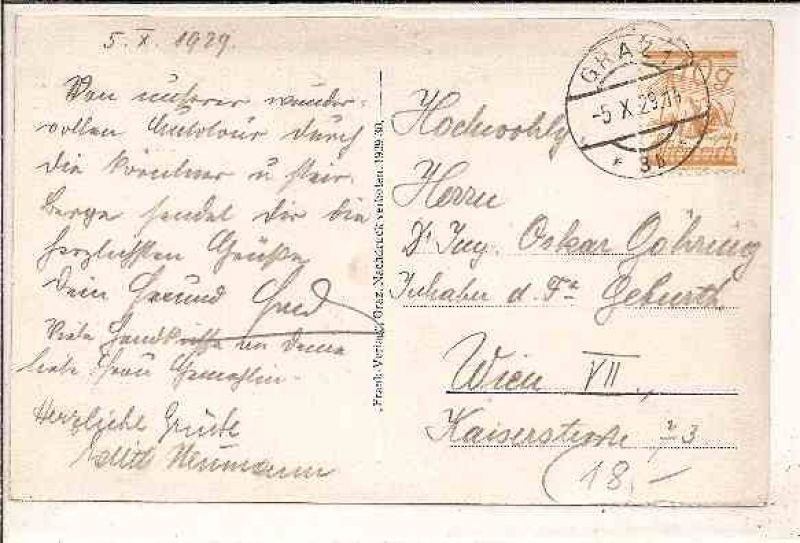 5. X. 1929.
Von unserer wunder-
vollen Autotour durch
die Kärntner u steir.
Berge sendet Dir die
herzlichsten Grüße
Dein Freund
Viele Handküsse an Deine
liebe Frau Gemahlin.
Herzliche Grüße
Edith Neumann
„Frank-Verlag", Graz. Nachdruck verboten. 1929.30.
GRAZ 1
-5.X.29.11
* 8b *
10g
Hochwohlg
Herrn
Dr Ing. Oskar Göhring
Inhaber d. Fa Geburth
Wien VII.,
Kaiserstraße 23
(18.-